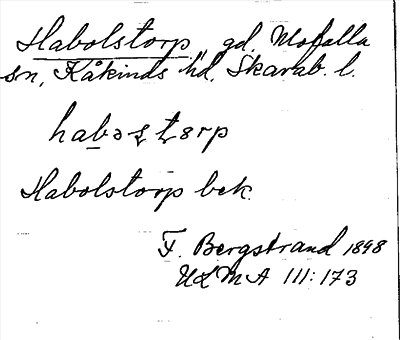 Habolstorp, gd, Mofalla
sn, Kåkinds hd, Skarab. l.
Habolstorp bek.
F. Bergstrand 1898
ULMA III: 173